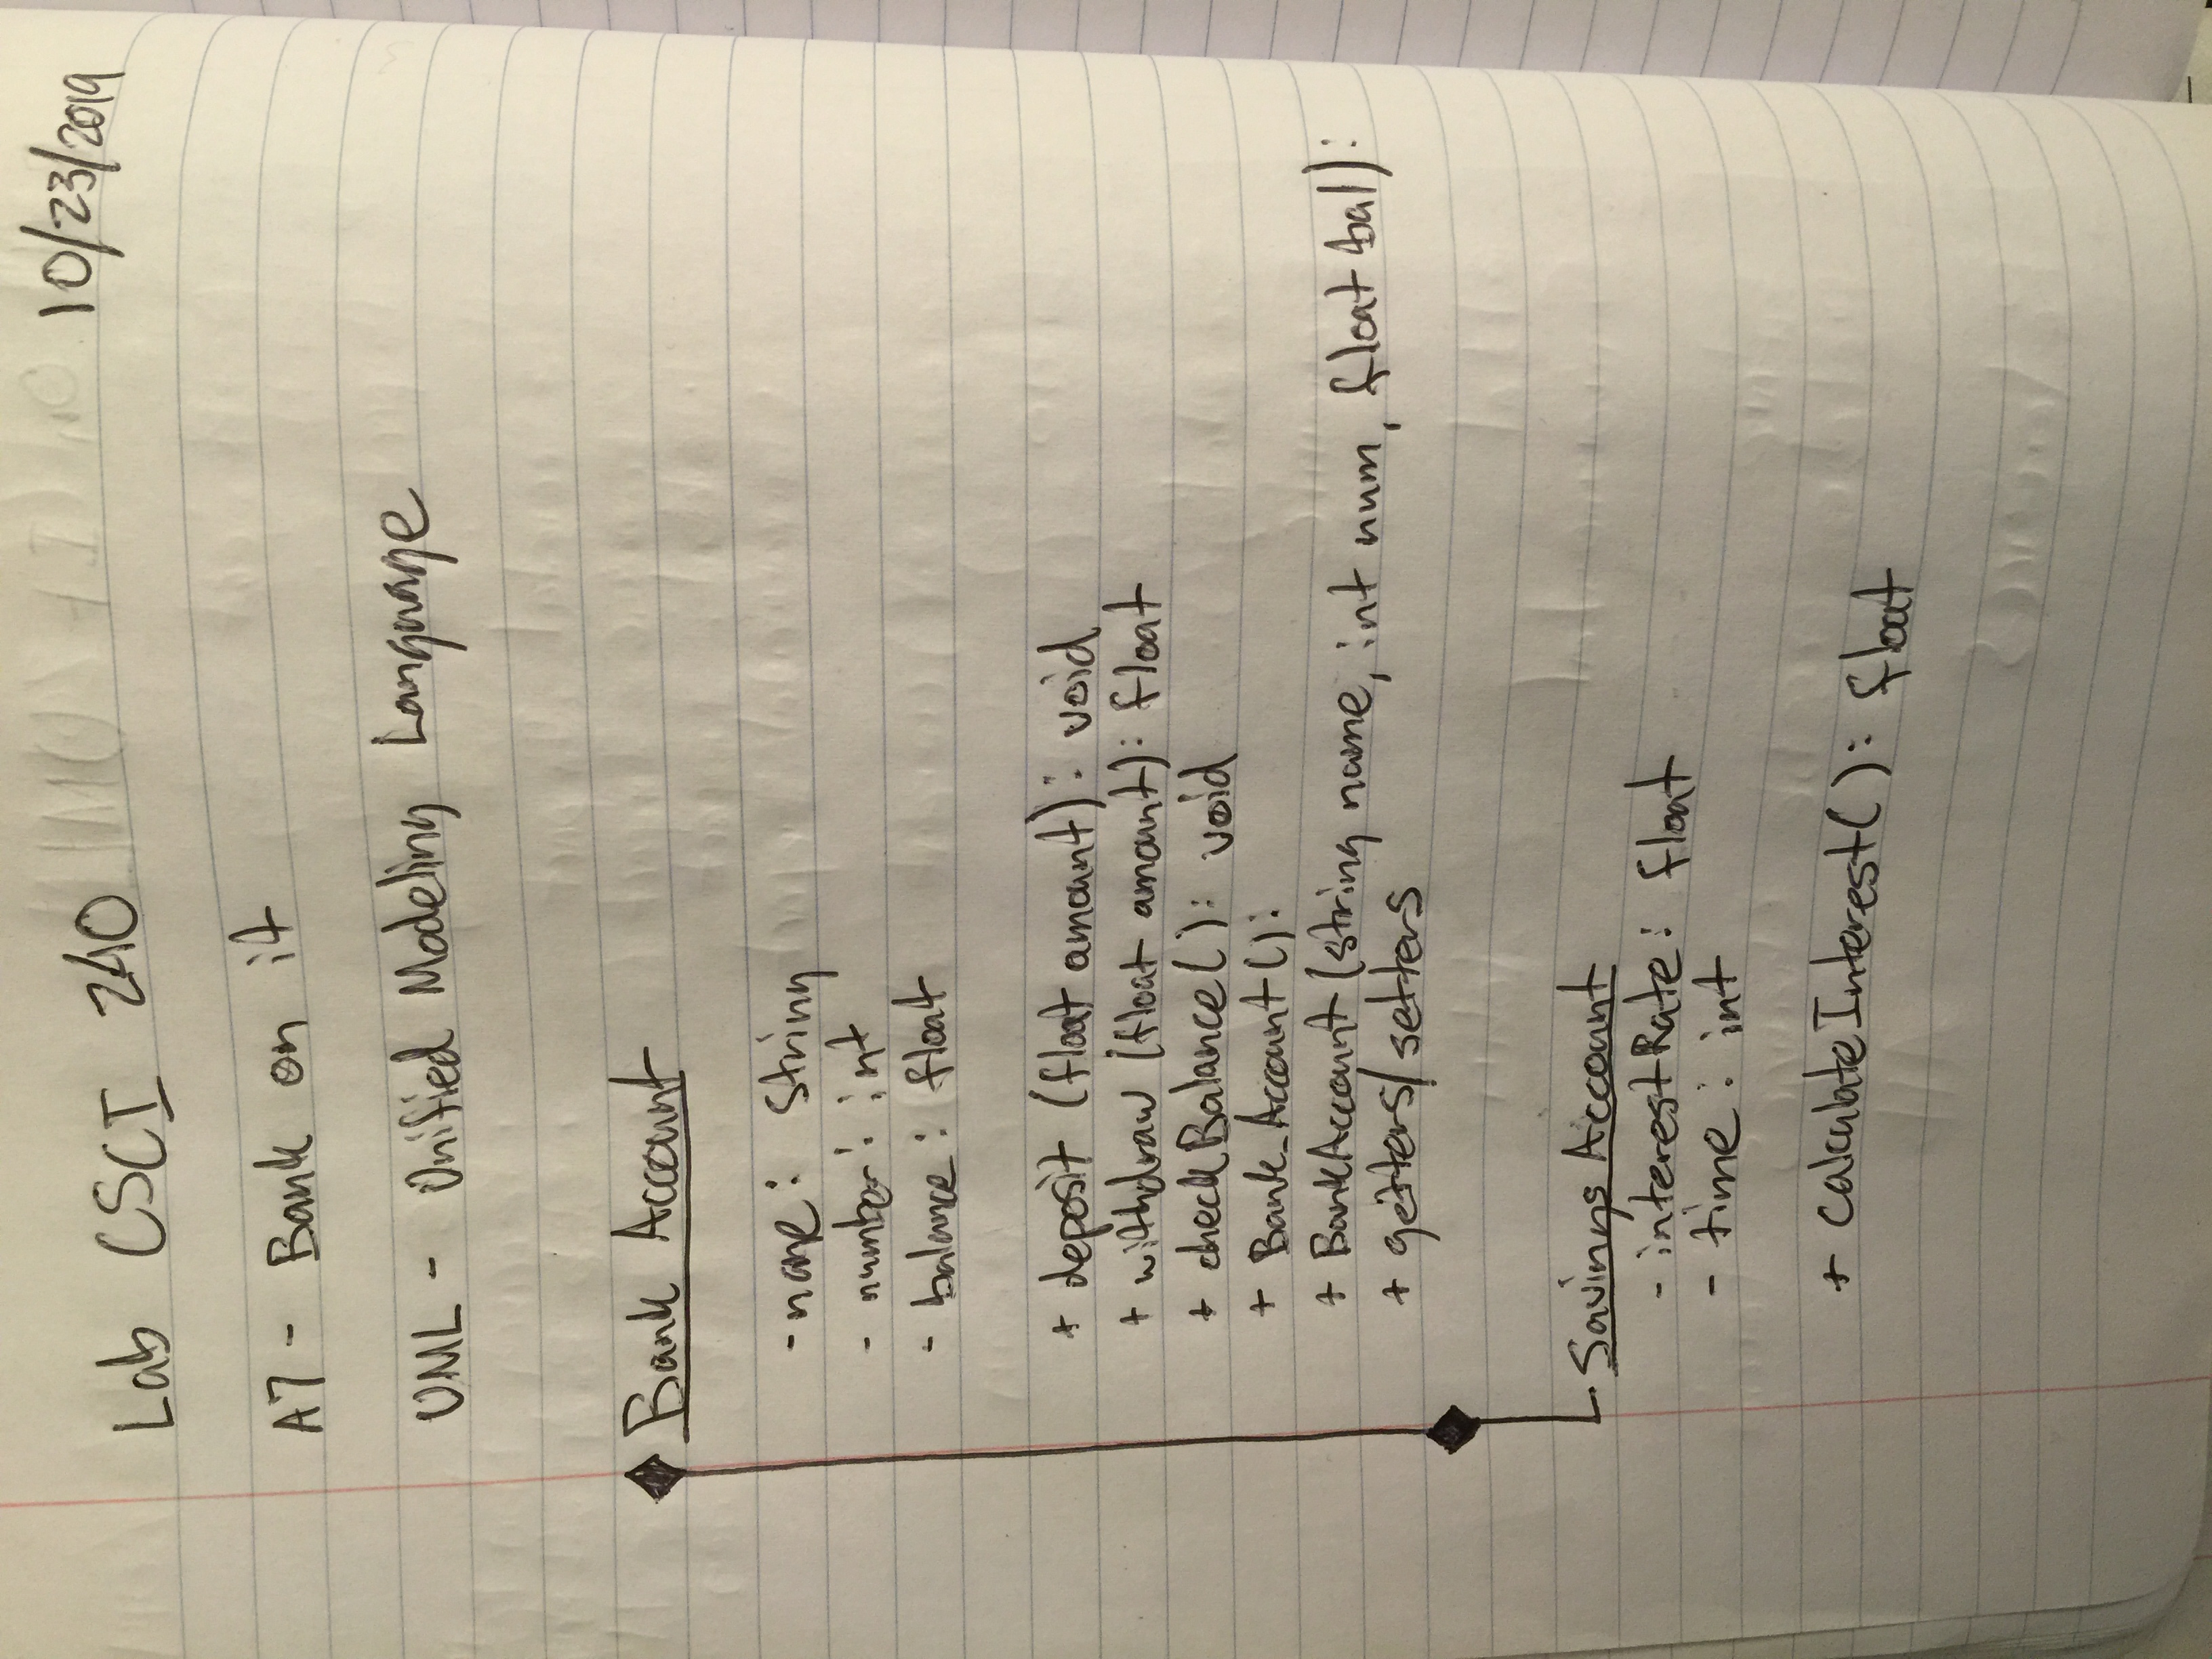 10/23/2019
Lab CSCI 240
A7 - Bank on it
UML - Unified Modeling Language
Bank Account
- name: string
- number: int
- balance: float
+ deposit (float amount): void
+ withdraw (float amount): float
+ checkBalance(): void
+ Bank_Account():
+ BankAccount(string name, int num, float bal):
+ getters/setters
Savings Account
- interestRate: float
- time: int
+ CalculateInterest(): float